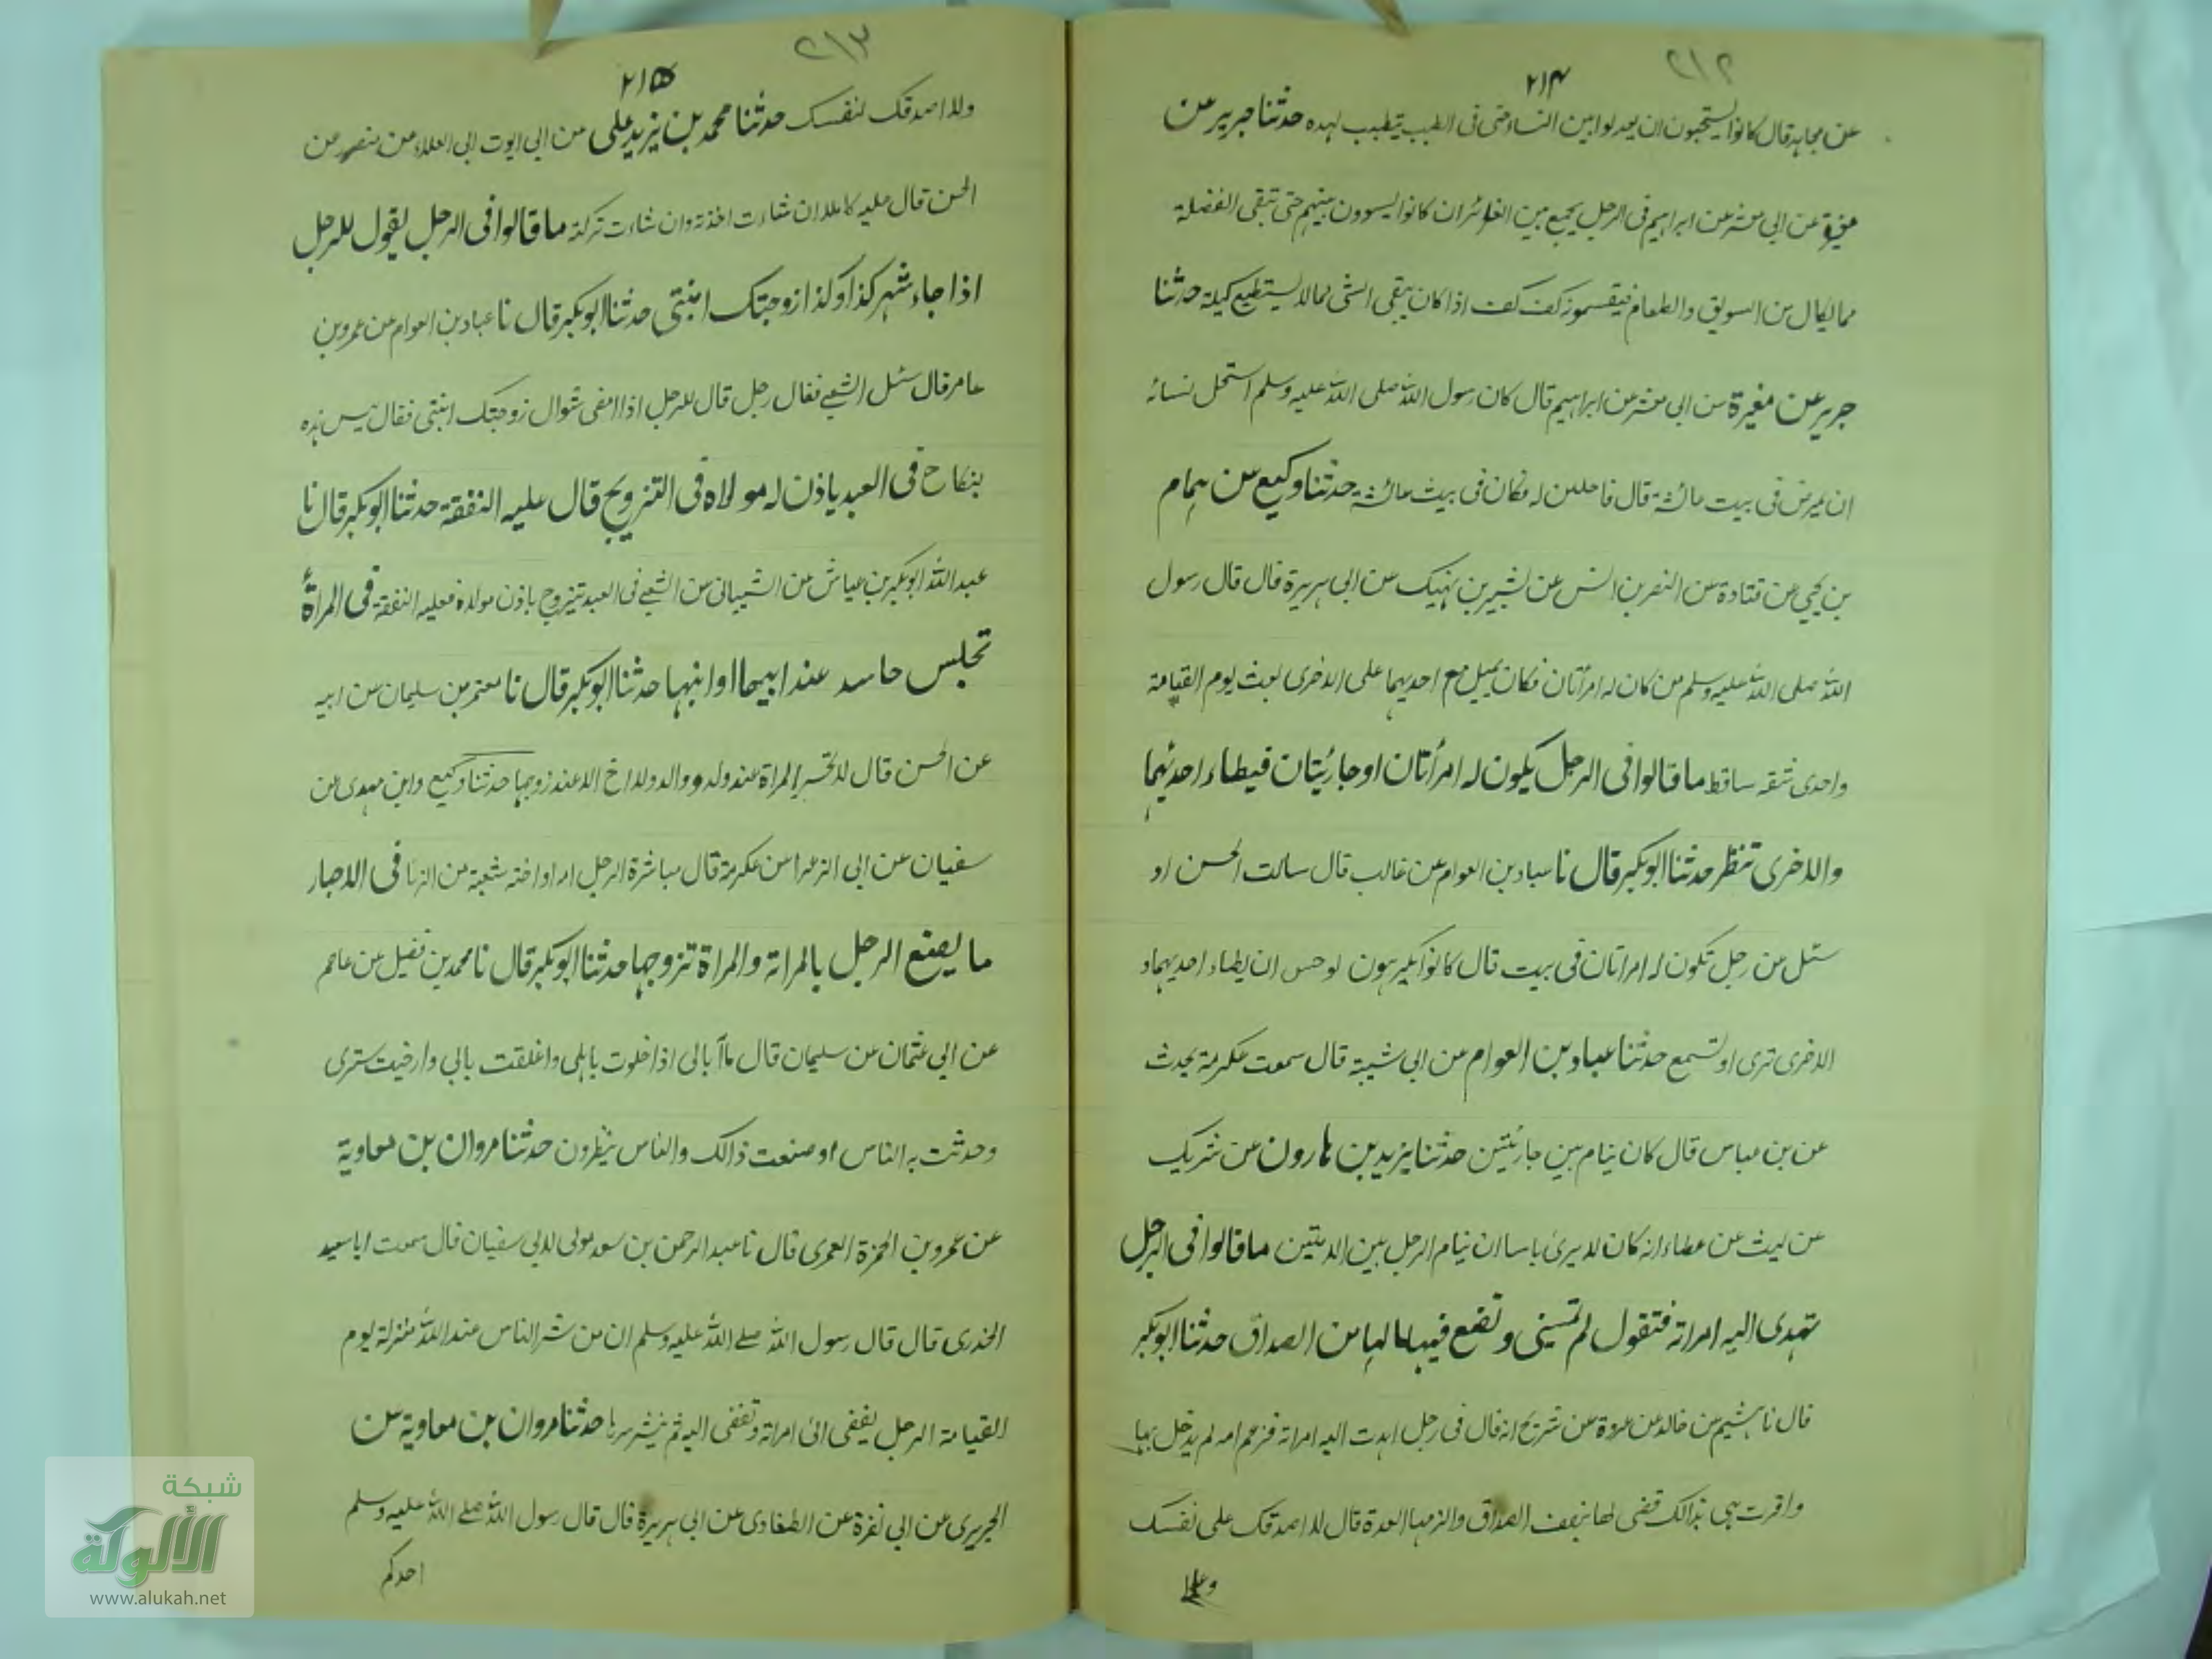 ٢١٢
٢١٤
عن مجاهد قال كانوا يستحبون ان يعدلوا بين النساء حتى فى الطيب يتطيب لهذه حدثنا جرير عن
مغيرة عن ابى معشر عن ابراهيم فى الرجل يجمع بين الضرائر ان كانوا ليسوون بينهم حتى تبقى الفضلة
مما يكال من السويق والطعام فيقسمونه كف كف اذا كان يبقى الشى مما لا يستطيع كيله حدثنا
جرير عن مغيرة عن ابى معشر عن ابراهيم قال كان رسول الله صلى الله عليه وسلم استحل نسائه
ان يمرض فى بيت عائشة قال فاحللن له فكان فى بيت عائشة حدثنا وكيع عن همام
بن يحيى عن قتادة عن النضر بن انس عن بشير بن نهيك عن ابى هريرة قال قال رسول
الله صلى الله عليه وسلم من كان له امرأتان فكان يميل مع احديهما على الاخرى بعث يوم القيامة
واحدى شقه ساقط ما قالوا فى الرجل يكون له امرأتان او جاريتان فيطاء احديهما
والاخرى تنظر حدثنا ابو بكر قال نا عباد بن العوام عن غالب قال سالت الحسن او
سئل عن رجل تكون له امراتان فى بيت قال كانوا يكرهون الوجس ان يطاء احديهما و
الاخرى ترى او تسمع حدثنا عباد بن العوام عن ابى شيبة قال سمعت عكرمة يحدث
عن بن عباس قال كان ينام بين جاريتين حدثنا يزيد بن هارون عن شريك
عن ليث عن عطاء انه كان لا يرى باسا ان ينام الرجل بين الامتين ما قالوا فى الرجل
تهدى اليه امراته فتقول لم تمسنى وتضع فيها ما لها من الصداق حدثنا ابو بكر
قال نا هشيم عن خالد عن عروة عن شريح انه قال فى رجل اهدت اليه امراته فزعم انه لم يدخل بها
واقرت هى بذالك قضى لها بنصف الصداق والزمها العدة قال لا اصدقك على نفسك
٢١٣
٢١٥
ولا اصدقك لنفسك حدثنا محمد بن يزيد على عن ابى ايوب ابى العلاء عن منصور عن
الحسن قال عليه كاملا ان شاءت اخذته وان شاءت تركته ما قالوا فى الرجل يقول للرجل
اذا جاء شهر كذا وكذا زوجتك ابنتى حدثنا ابو بكر قال نا عباد بن العوام عن عمرو بن
عامر قال سئل الشعبى فقال رجل قال للرجل اذا مضى شوال زوجتك ابنتى فقال ليس هذه
بنكاح فى العبد ياذن له مولاه فى التزويج قال عليه النفقة حدثنا ابو بكر قال نا
عبد الله ابو بكر بن عياش عن الشيبانى عن الشعبى فى العبد تيزوج باذن مولاه فعليه النفقة فى المرأة
تجلس حاسد عند ابيها او ابنها حدثنا ابو بكر قال نا معتمر بن سليمان عن ابيه
عن الحسن قال لا تحسر المراة عند ولد ووالد ولا اخ الا عند زوجها حدثنا وكيع وابن مهدى عن
سفيان عن ابى الزعرا عن عكرمة قال مباشرة الرجل امه او اخته شعبة من الزنا فى الاخبار
ما يصنع الرجل بالمراته والمراة تزوجها حدثنا ابو بكر قال نا محمد بن فضيل عن عاصم
عن ابى عثمان عن سليمان قال ما ابالى اذا خلوت باهلى واغلقت بابى وارخيت سترى
وحدثت به الناس او صنعت ذالك والناس ينظرون حدثنا مروان بن معاوية
عن عمرو بن الحمزة العمرى قال نا عبد الرحمن بن سعد مولى لابى سفيان قال سمعت ابا سعيد
الخدرى قال قال رسول الله صلى الله عليه وسلم ان من شر الناس عند الله منزلة يوم
القيامة الرجل يفضى الى امراته وتفضى اليه ثم ينشر سرها حدثنا مروان بن معاوية عن
الجريرى عن ابى نضرة عن الطفاوى عن ابى هريرة قال قال رسول الله صلى الله عليه وسلم
احدكم
شبكة
الألوكة
www.alukah.net